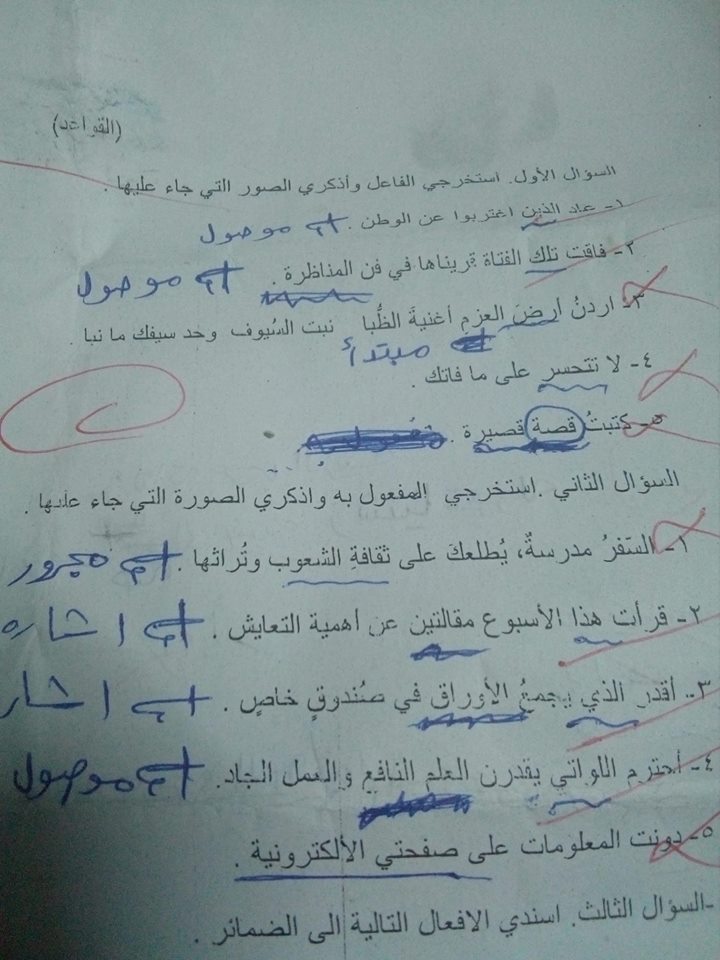 (القواعد)
السؤال الأول. استخرجي الفاعل وأذكري الصور التي جاء عليها .
١- عاد الذين اغتربوا عن الوطن . اسم موصول
٢- فاقت تلك الفتاة قريناها في فن المناظرة . اسم موصول
٣- اردنُ أرضَ العزمِ أغنيةَ الظُبا نبت السُيوف وحد سيفك ما نبا .
مبتدأ
٤- لا تتحسر على ما فاتك .
٥- كتبتُ قصة قصيرة .
السؤال الثاني .استخرجي المفعول به واذكري الصورة التي جاء عليها .
١- السَفرُ مدرسةٌ، يُطلعكَ على ثقافةِ الشعوب وتُراثها . اسم مجرور
٢- قرأت هذا الأسبوع مقالتين عن أهمية التعايش . اسم اشاره
٣- أقدر الذي يجمعُ الأوراق في صُندوقٍ خاصٍ . اسم اشار
٤- أحترم اللواتي يقدرن العلم النافع والعمل الجاد. اسم موصول
٥- دونت المعلومات على صفحتي الألكترونية .
-السؤال الثالث. اسندي الافعال التالية الى الضمائر .